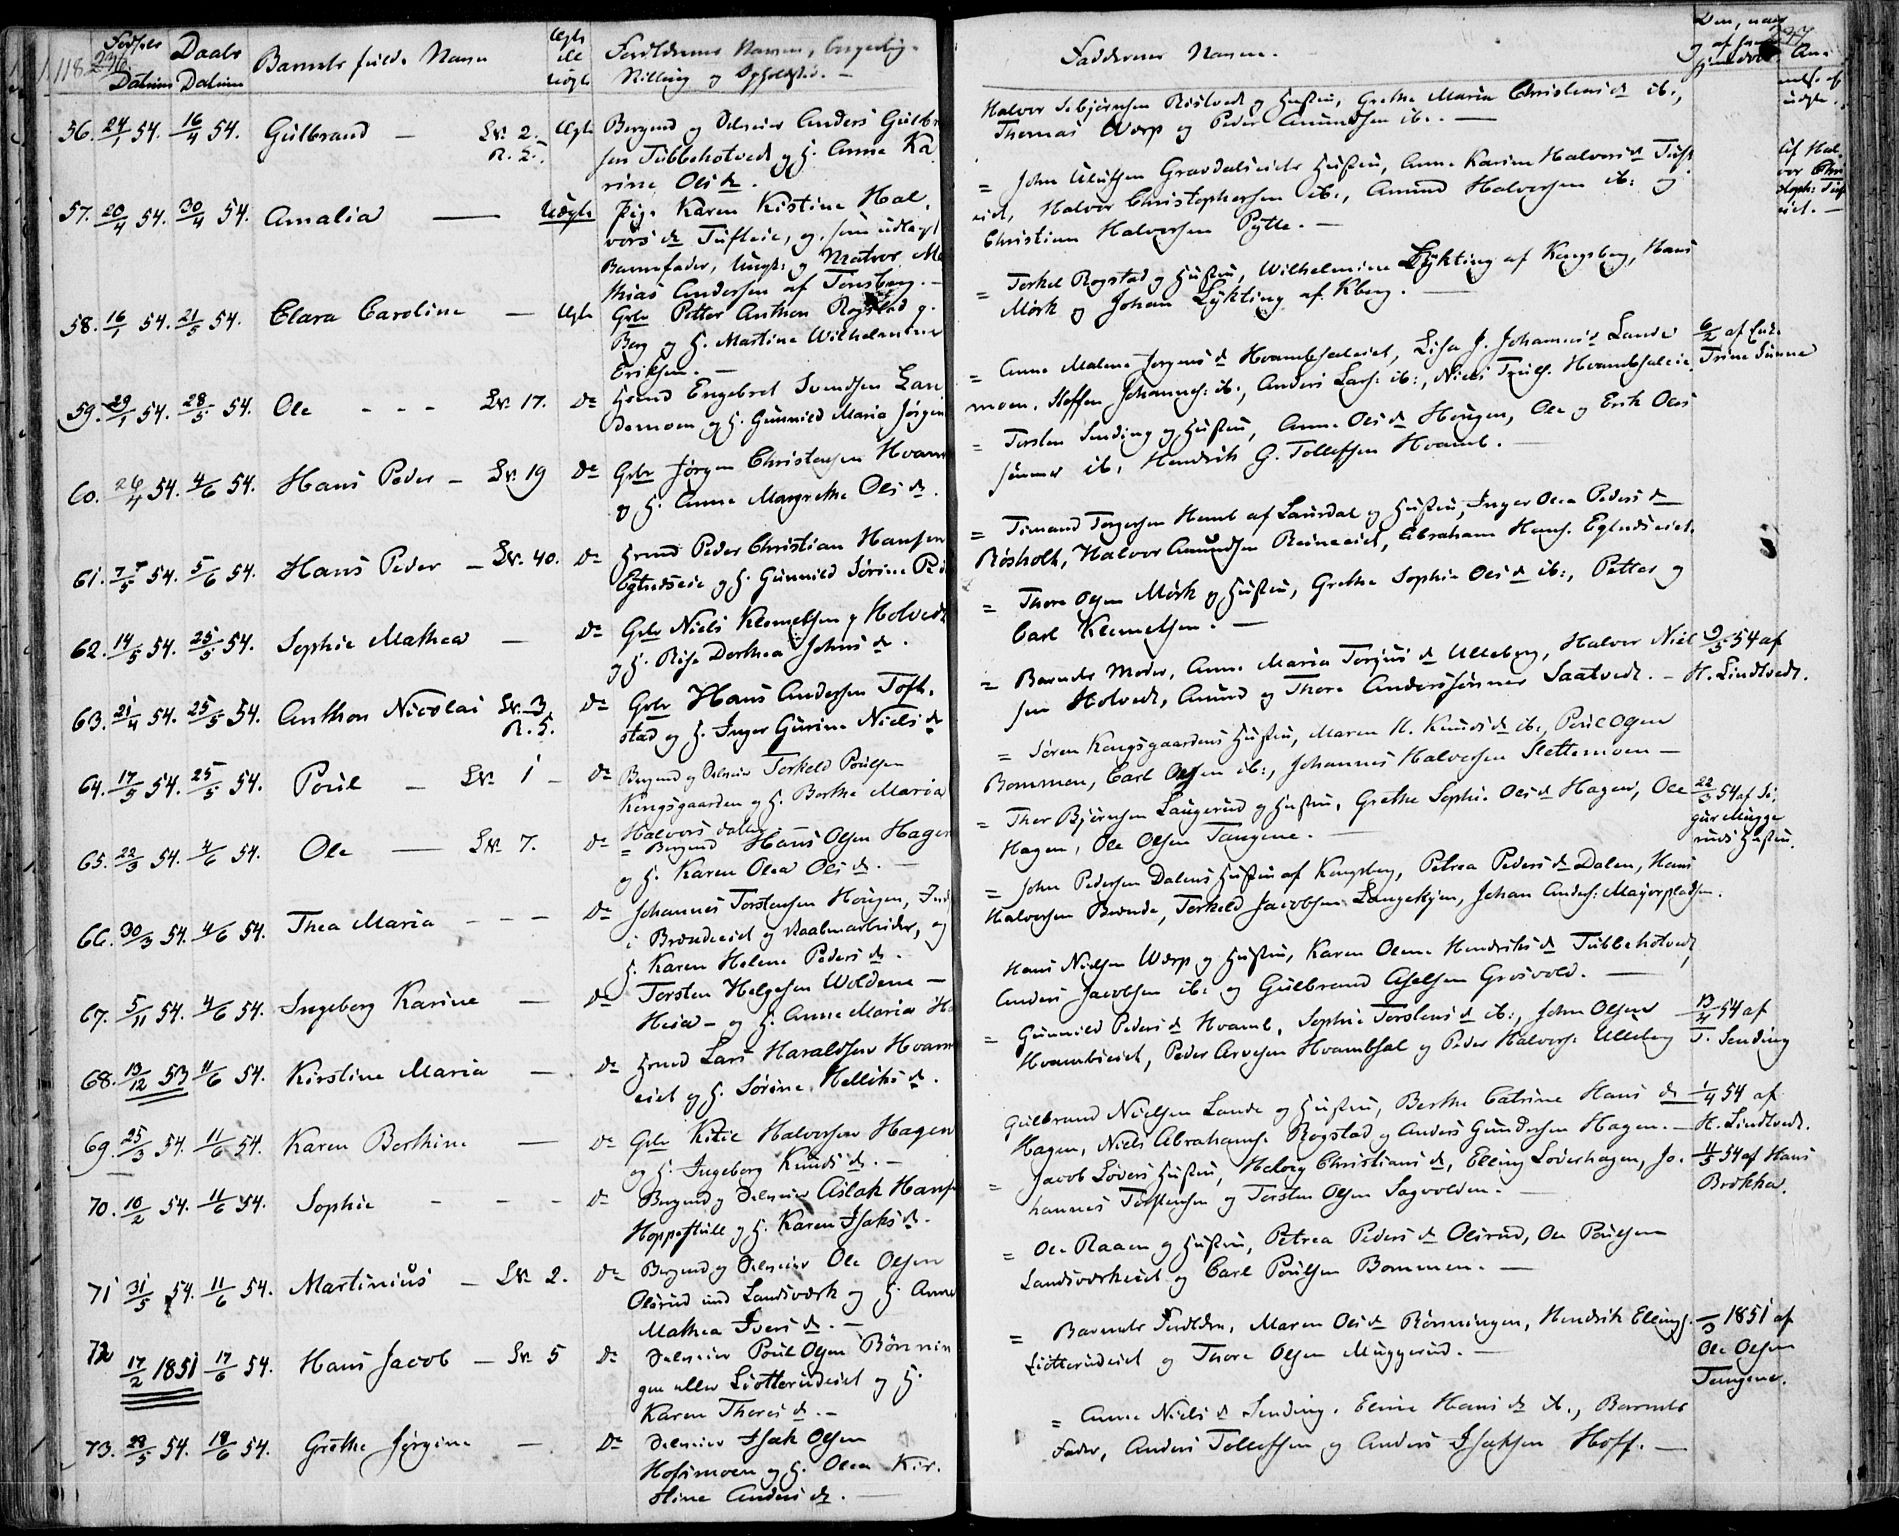 118. 236.
Fødsels Datum
Daabs Datum
Barnets fulde Navn
Ægte ell. Uægte
Forældrenes Navne, borgerlig
Stilling og Opholdsted. —
56. 24/1 54. 16/4 54. Gulbrand — Lv. 2. R. 2. Ægte Bergmd og Selveier Anders Gulbr
sen Tubbehotvedt og H. Anne Ka
rine Olsdr.
57. 20/4 54. 30/4 54. Amalia — Uægte Pige Karen Kistine Hal,
vorsdr Tufteie, og, som udlagt
Barnefader, Ungk: og Matros Ma
thias Andersen af Tønsberg. —
58. 16/1 54. 21/5 54. Clara Caroline — Ægte Grbr Petter Anthon Rogstad og
Berg og H. Martine Wilhelmine
Eriksen. —
59. 29/1 54. 28/5 54. Ole - - - Lv. 17. Do Hmd Engebret Svendsen Lan
demoen og H. Gunnild Maria Jørgen
60. 26/4 54. 4/6 54. Hans Peder — Lv. 19 Do Grbr Jørgen Christensen Hvam
og H. Anne Margrethe Olsdr.
61. 7/5 54. 5/6 54. Hans Peder — Lv. 40. Do Hmd Peder Christian Hansen
Egludseie og H. Gunnild Sørine Pe
62. 14/5 54. 25/5 54. Sophie Mathea — Do Grbr Niels Klemetsen Holvedt
og H. Rise Dorthea Johnsdr.
63. 21/4 54. 25/5 54. Anthon Nicolai Lv. 3. R. 5. Do Grbr Hans Andersen Toft,
stad og H. Inger Gurine Nielsdr
64. 17/5 54. 25/5 54. Poul — Lv. 1 — Do Bergmd og Selveier Terkeld Poulsen
Kongsgaarden og H. Berthe Maria
Halvorsdatter
65. 22/3 54. 4/6 54. Ole — Lv. 7. Do Bergmd Hans Olsen Hagen
og H. Karen Olea Olsdr. —
66. 30/3 54. 4/6 54. Thea Maria - - - Do Johannes Torstensen Hougen, Ind
i Brændeeiet og Staalmarbeider, og
H. Karen Helene Pedersdr.
67. 5/11 54. 4/6 54. Ingeborg Karine — Do Torsten Helgesen Woldene —
Heia — og H. Anne Maria H
68. 13/12 53 11/6 54. Kirstine Maria — Do Hmd Lars Haraldsen Hvam
eiet og H. Sørine Helliksdr.
69. 25/3 54. 11/6 54. Karen Berthine — Do Grbr Kitil Halvorsen Hagen
og H. Ingeborg Knudsdr. —
70. 10/2 54. 11/6 54. Sophie - - - Do Bergmd og Selveier Aslak Hans
Hoppestull og H. Karen Isaksdr.
71 31/5 54. 11/6 54. Martinius — Lv. 2. Do Bergmd og Selveier Ole Olsen
Olsrud und Landsværk og H. Anne
Mathea Iversdr. —
72 17/2 1851 17/6 54. Hans Jacob — Lv 5 Do Selveier Poul Olsen Rønnin
gen eller Liotterudeiet og H.
Karen Thoresdr. —
73. 28/5 54. 18/6 54. Grethe Jørgine — Do Selveier Isak Olsen
Hofsmoen og H. Olea Kir.
stine Andersdr. —
Faddernes Navne.
Halvor Sebjørnsen Röslvedt og Hustru, Grethe Maria Christensdr ib.,
Thomas Worp og Peder Amundsen ib. —
= John Knutsen Gravdalseiets Hustru, Anne Karine Halvorsdr Tuft
eiet, Halvor Christophersen ib., Amund Halvorsen ib: og
Christian Halvorsen Pytte. —
Uf Hal,
vor Chri
stoph: Tuft
eiet. —
= Terkel Rogstad og Hustru, Wilhelmine Lykting af Kongsberg, Hans
Mörk og Johan Lykting af Kberg. —
= Anne Malene Jørgensdr Hvambsaleiet, Lisa J. Johannesdr Lande
moen, Steffen Johannes: ib:, Anders Lars: ib:, Niels Truls. Hvambsaleie
6/2 af
Trine Sunne
= Torsten Sending og Hustru, Anne Olsdr Hougen, Ole og Erik Oles
sønner ib. Hendrik G. Tollefsen Hvamb. —
= Simund Torgersen Hemb af Laurdal og Hustru, Inger Olea Pedersdr
Rösholt, Halvor Amundsen Reineeiet, Abraham Hans. Egludseiet.
= Thore Olsen Mörk og Hustru, Grethe Sophie Olsdr ib:, Petter og
Carl Klemetsen. —
= Barnets Moder, Anne Maria Torjusdr Ulleberg, Halvor Niel
sen Holvedt, Amund og Thore Anderssønner Saatvedt. —
9/5 54 af
H. Lindtvedt.
= Søren Kongsgaardens Hustru, Maren K. Knudsdr ib., Poul Olsen
Bommen, Carl Olsen ib:, Johannes Halvorsen Slettemoen —
= Thor Bjørnsen Laugerud og Hustru, Grethe Sophie Olsdr Hagen, Ole
Hagen, Ole Olsen Tangene. —
22/3 54 af Si,
gur Mugge
ruds Hustru.
= John Pedersen Dalens Hustru af Kongsberg, Petrea Pedersdr Dalen, Hans
Halvorsen Brænde, Terkeld Jacobsen Langekjen, Johan Anders: Majorpladsen.
Hans Nielsen Worp og Hustru, Karen Olene Hendriksdr Tubbehotvedt,
Anders Jacobsen ib: og Gulbrand Axelsen Grosvold. —
= Gunnild Pedersdr Hvamb, Sophie Torstensdr ib:, John Olsen
Hvambseiet, Peder Arvesen Hvambsal og Peder Halvors: Ulleberg
13/4 54 af
T. Sending
Gulbrand Nielsen Lande og Hustru, Berthe Catrine Hansdr
Hagen, Niels Abrahams. Rogstad og Anders Gundersen Hagen. —
1/4 54 af
H. Lindtvedt.
= Jacob Lövers Hustru, Helvig Christiansdr, Elling Loverhagen, Jo.
hannes Torstensen og Torsten Olsen Sagvolden. —
4/5 54 af Hans
Brokka.
= Ole Raaen og Hustru, Petrea Pedersdr Olsrud, Ole Poulsen
Landsværkeiet og Carl Poulsen Bommen. —
= Barnets Forældre, Maren Olsdr Rønningen, Hendrik Ellings.
Liotterudeiet og Thore Olsen Muggerud. —
1851 af
Ole Olsen
Tangene.
= Anne Nielsdr Sending, Eline Hansdr ib., Barnets
Fader, Anders Tollefsen og Anders Isaksen Hoff. —